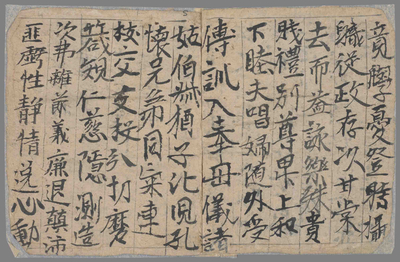 竟學憂登時攝
職從政存以甘棠
去而益詠樂殊貴
賤禮別尊卑上和
下睦夫唱婦随外受
傅訓入奉母儀諸
姑伯叔猶子比兒孔
懷兄弟同氣連
枝交支投分切磨
箴規仁慈隱測造
次弗離節義廉退顛沛
匪虧性静情逸心動